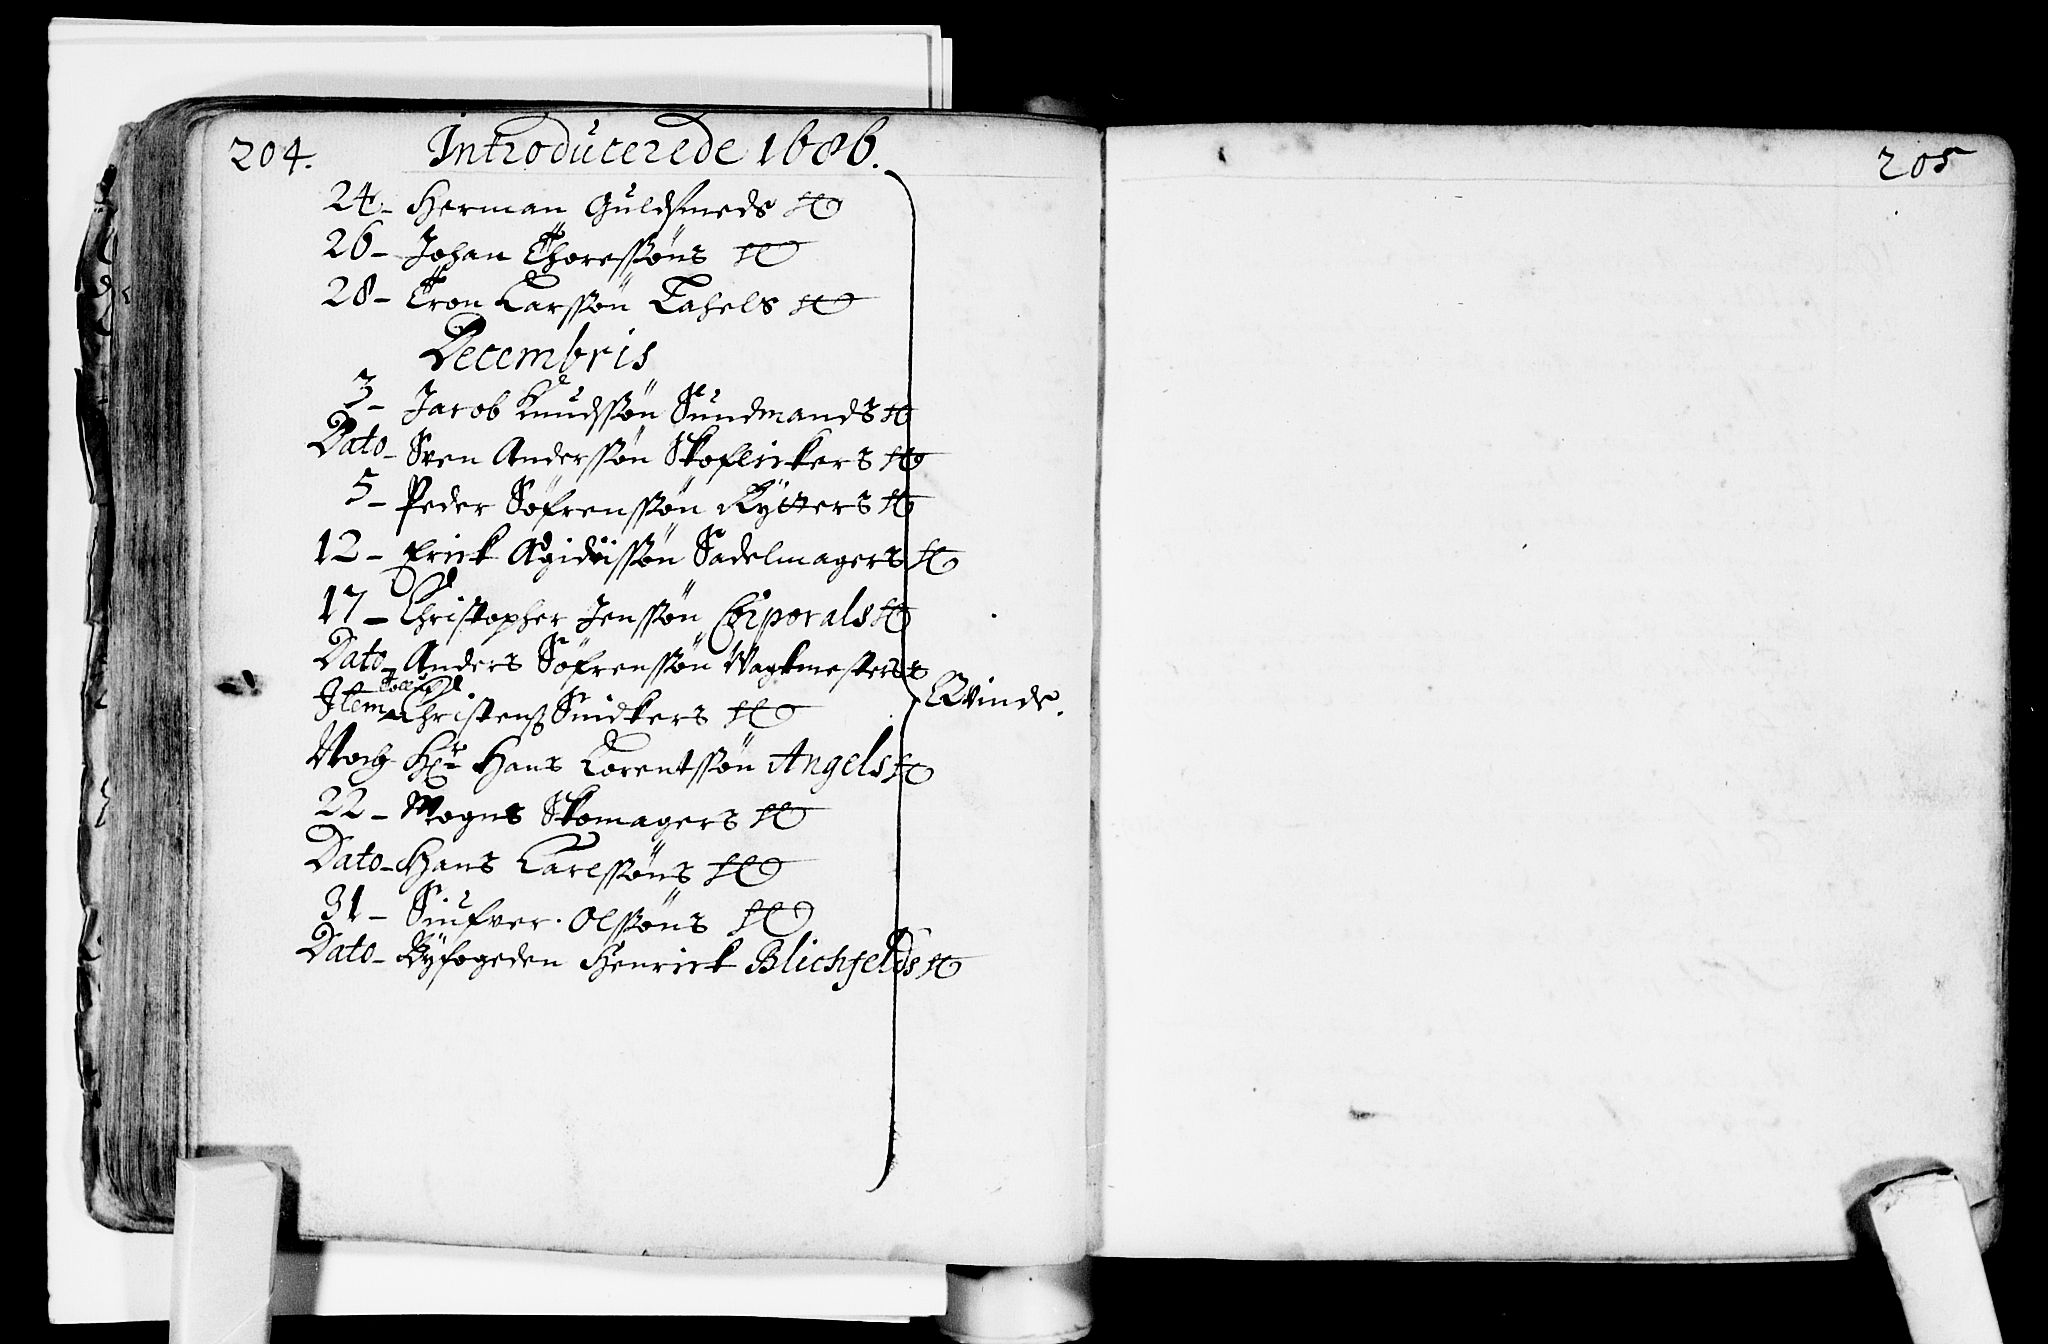 204.
Introducerede 1686.
24- Herman Guldsmeds
26- Johan Thoressøns
28- Tron Larssøn
Decembris
3- Jacob Knudssøn Sundmands
Dato- Sven Anderssøn Skoflickers
5- Peder Søfrenssøn Rytters
12- Erick Ægidiissøn Sadelmagers
17- Christopher Jenssøn Corporals
Dato- Anders Søfrenssøn Vagtmesters
Item- Christens Snidkers
Noch Hr Hans Lorentssøn Angels
22- Mogns Skomagers
Dato- Hans Carlssøns
31- Siufver Olssøns
Dato- Byfogeden Henrick Blichfelds
Qvinde.
205